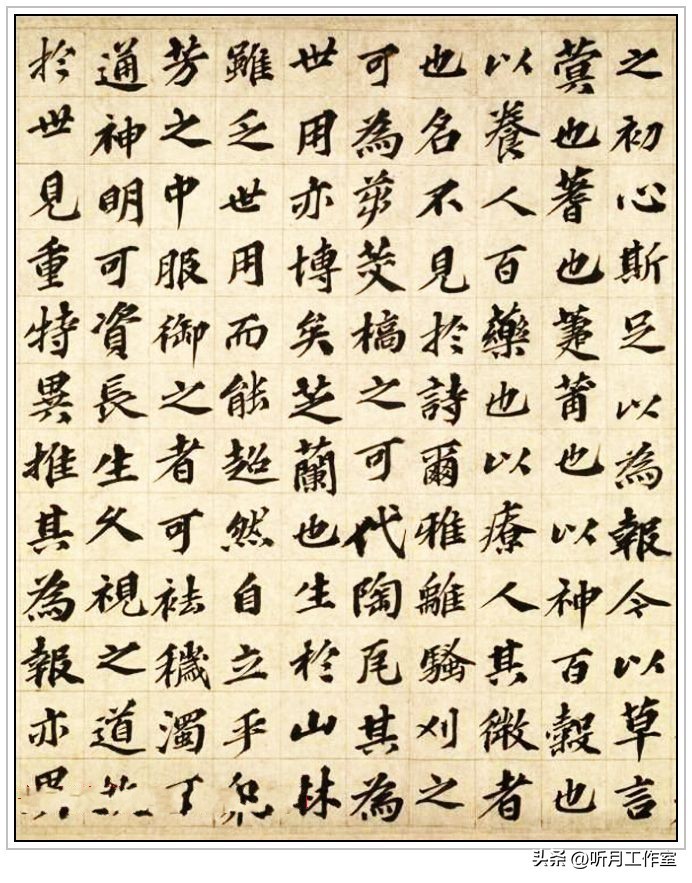 之初心斯足以為報今以草言
蓂也蓍也萐莆也以神百穀也
以養人百藥也以療人其微者
也名不見於詩爾雅離騷刈之
可為茭槁之可代陶瓦其為
世用亦博矣芝蘭也生於山林
雖乏世用而能超然自立乎
芳之中服御之者可祛穢濁
通神明可資長生久視之道
於世見重特異推其為報亦
头条 @听月工作室